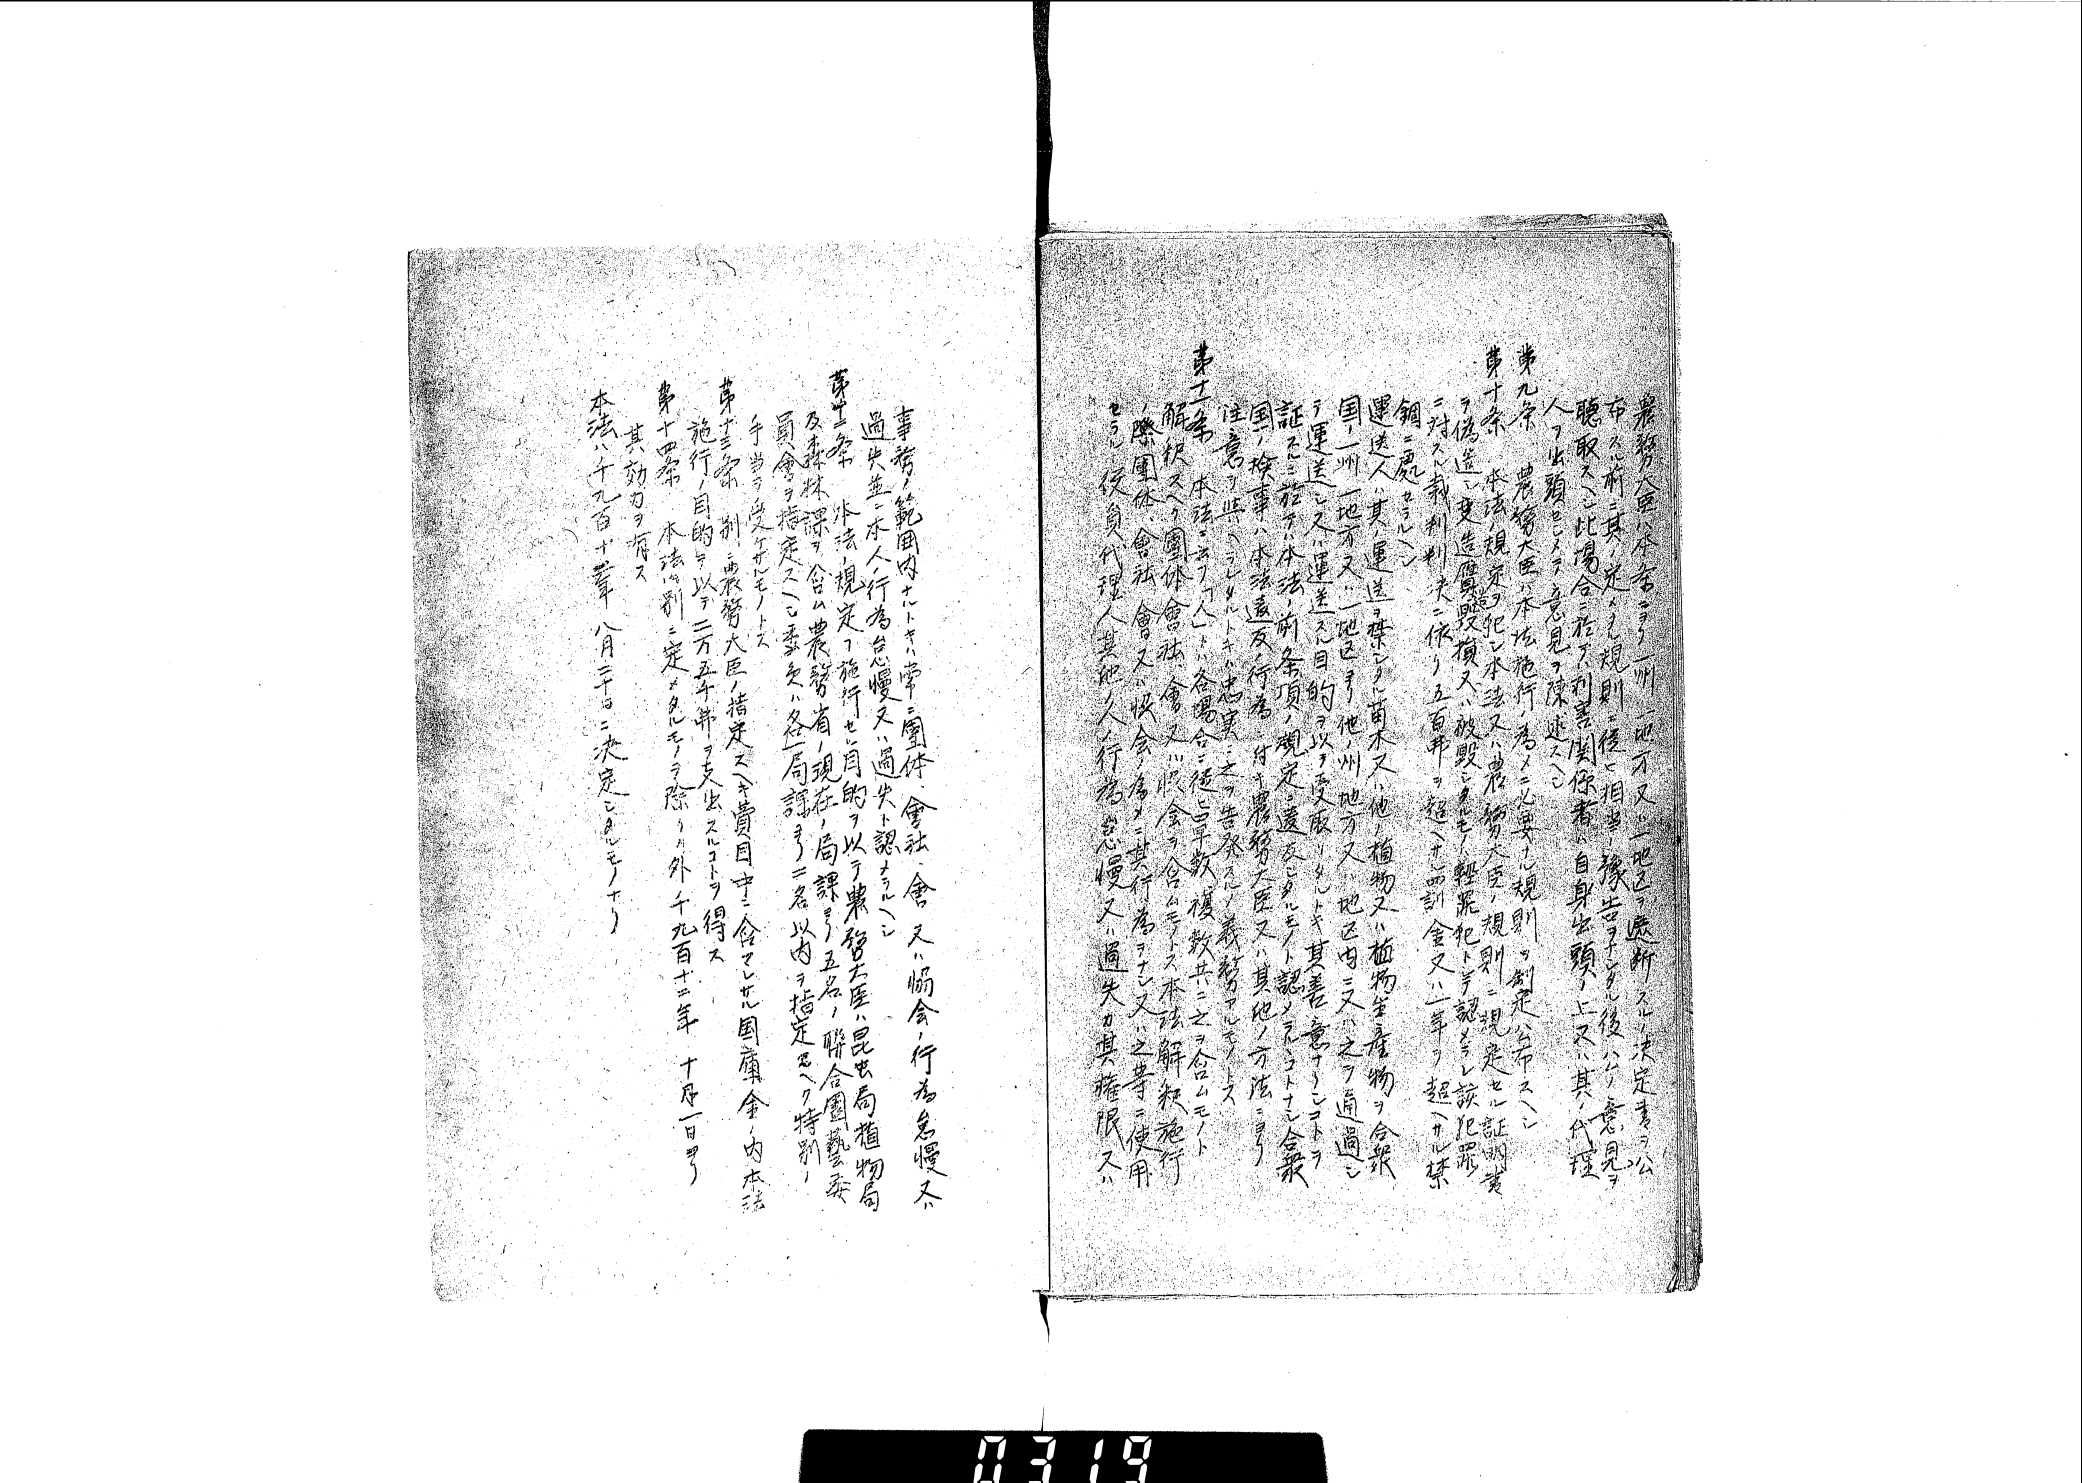 農務大臣ハ本条ニヨリ一州一地方又ハ一地区ヲ遮断スルノ決定書ヲ公
布スル前ニ其ノ定メタル規則ニ従ヒ相当ノ豫告ヲナシタル後公ノ意見ヲ
聴取スヘシ此場合ニ於テ利害関係者ハ自身出頭ノ上又ハ其ノ代理
人ヲ出頭セシメテ意見ヲ陳述スヘシ
第九条 農務大臣ハ本法施行ノ為メニ必要ナル規則ヲ制定公布スヘシ
第十条 本法ノ規定ヲ犯シ本法又ハ農務大臣ノ規則ニ規定セル証明書
ヲ偽造シ変造シ毀損又ハ破毀シタルモノハ軽罪犯トシテ認メラレ該犯罪
ニ対スル裁判判決ニ依リ五百弗ヲ超ヘサル罰金又ハ一年ヲ超ヘサル禁
錮ニ処セラルヘシ
運送人ハ其ノ運送ヲ禁シタル苗木又ハ他ノ植物又ハ植物生産物ヲ合衆
国ノ一州一地方又ハ一地区ヨリ他ノ州地方又ハ地区内ニ又ハ之ヲ通過シ
テ運送シ又ハ運送スル目的ヲ以テ受取リタルトキ其善意ナリシコトヲ
証スルニ於テハ本法ノ前条項ノ規定ニ違反シタルモノト認メラルコトナシ合衆
国ノ検事ハ本法違反ノ行為ニ付キ農務大臣又ハ其他ノ方法ニヨリ
注意ヲ与ヘラレタルトキハ忠実ニ之ヲ告発スルノ義務アルモノトス
第十一条 本法ニ云フ「人」トハ各場合ニ従ヒ単数複数共ニ之ヲ含ムモノト
解釈スヘク団体、會社、會又ハ協会ヲ含ムモノトス本法解釈施行
ノ際団体、會社、會又ハ協会ノ為メニ其行為ヲナシ又ハ之等ニ使用
セラル役員代理人其他ノ人ノ行為怠慢又ハ過失カ其権限又ハ
事務ノ範囲内ナルトキハ常ニ團体、會社、會又ハ協会ノ行為怠慢又ハ
過失並ニ本人ノ行為怠慢又ハ過失ト認メラルヘシ
第十二条 本法ノ規定ヲ施行セン目的ヲ以テ農務大臣ハ昆虫局植物局
及森林課ヲ含ム農務省ノ現在ノ局課ヨリ五名ノ聯合園藝委
員會ヲ指定スヘシ委員ハ各局課ヨリ二名以内ヲ指定スヘク特別ノ
手当ヲ受ケサルモノトス
第十三条 別ニ農務大臣ノ指定スヘキ費目中ニ含マレサル国庫金ノ内本法
施行ノ目的ヲ以テ二万五千弗ヲ支出スルコトヲ得ス
第十四条 本法ハ別ニ定メタルモノヲ除クノ外千九百十二年十月一日ヨリ
其効力ヲ有ス
本法ハ千九百十二年八月二十日ニ決定シタルモノナリ
0319